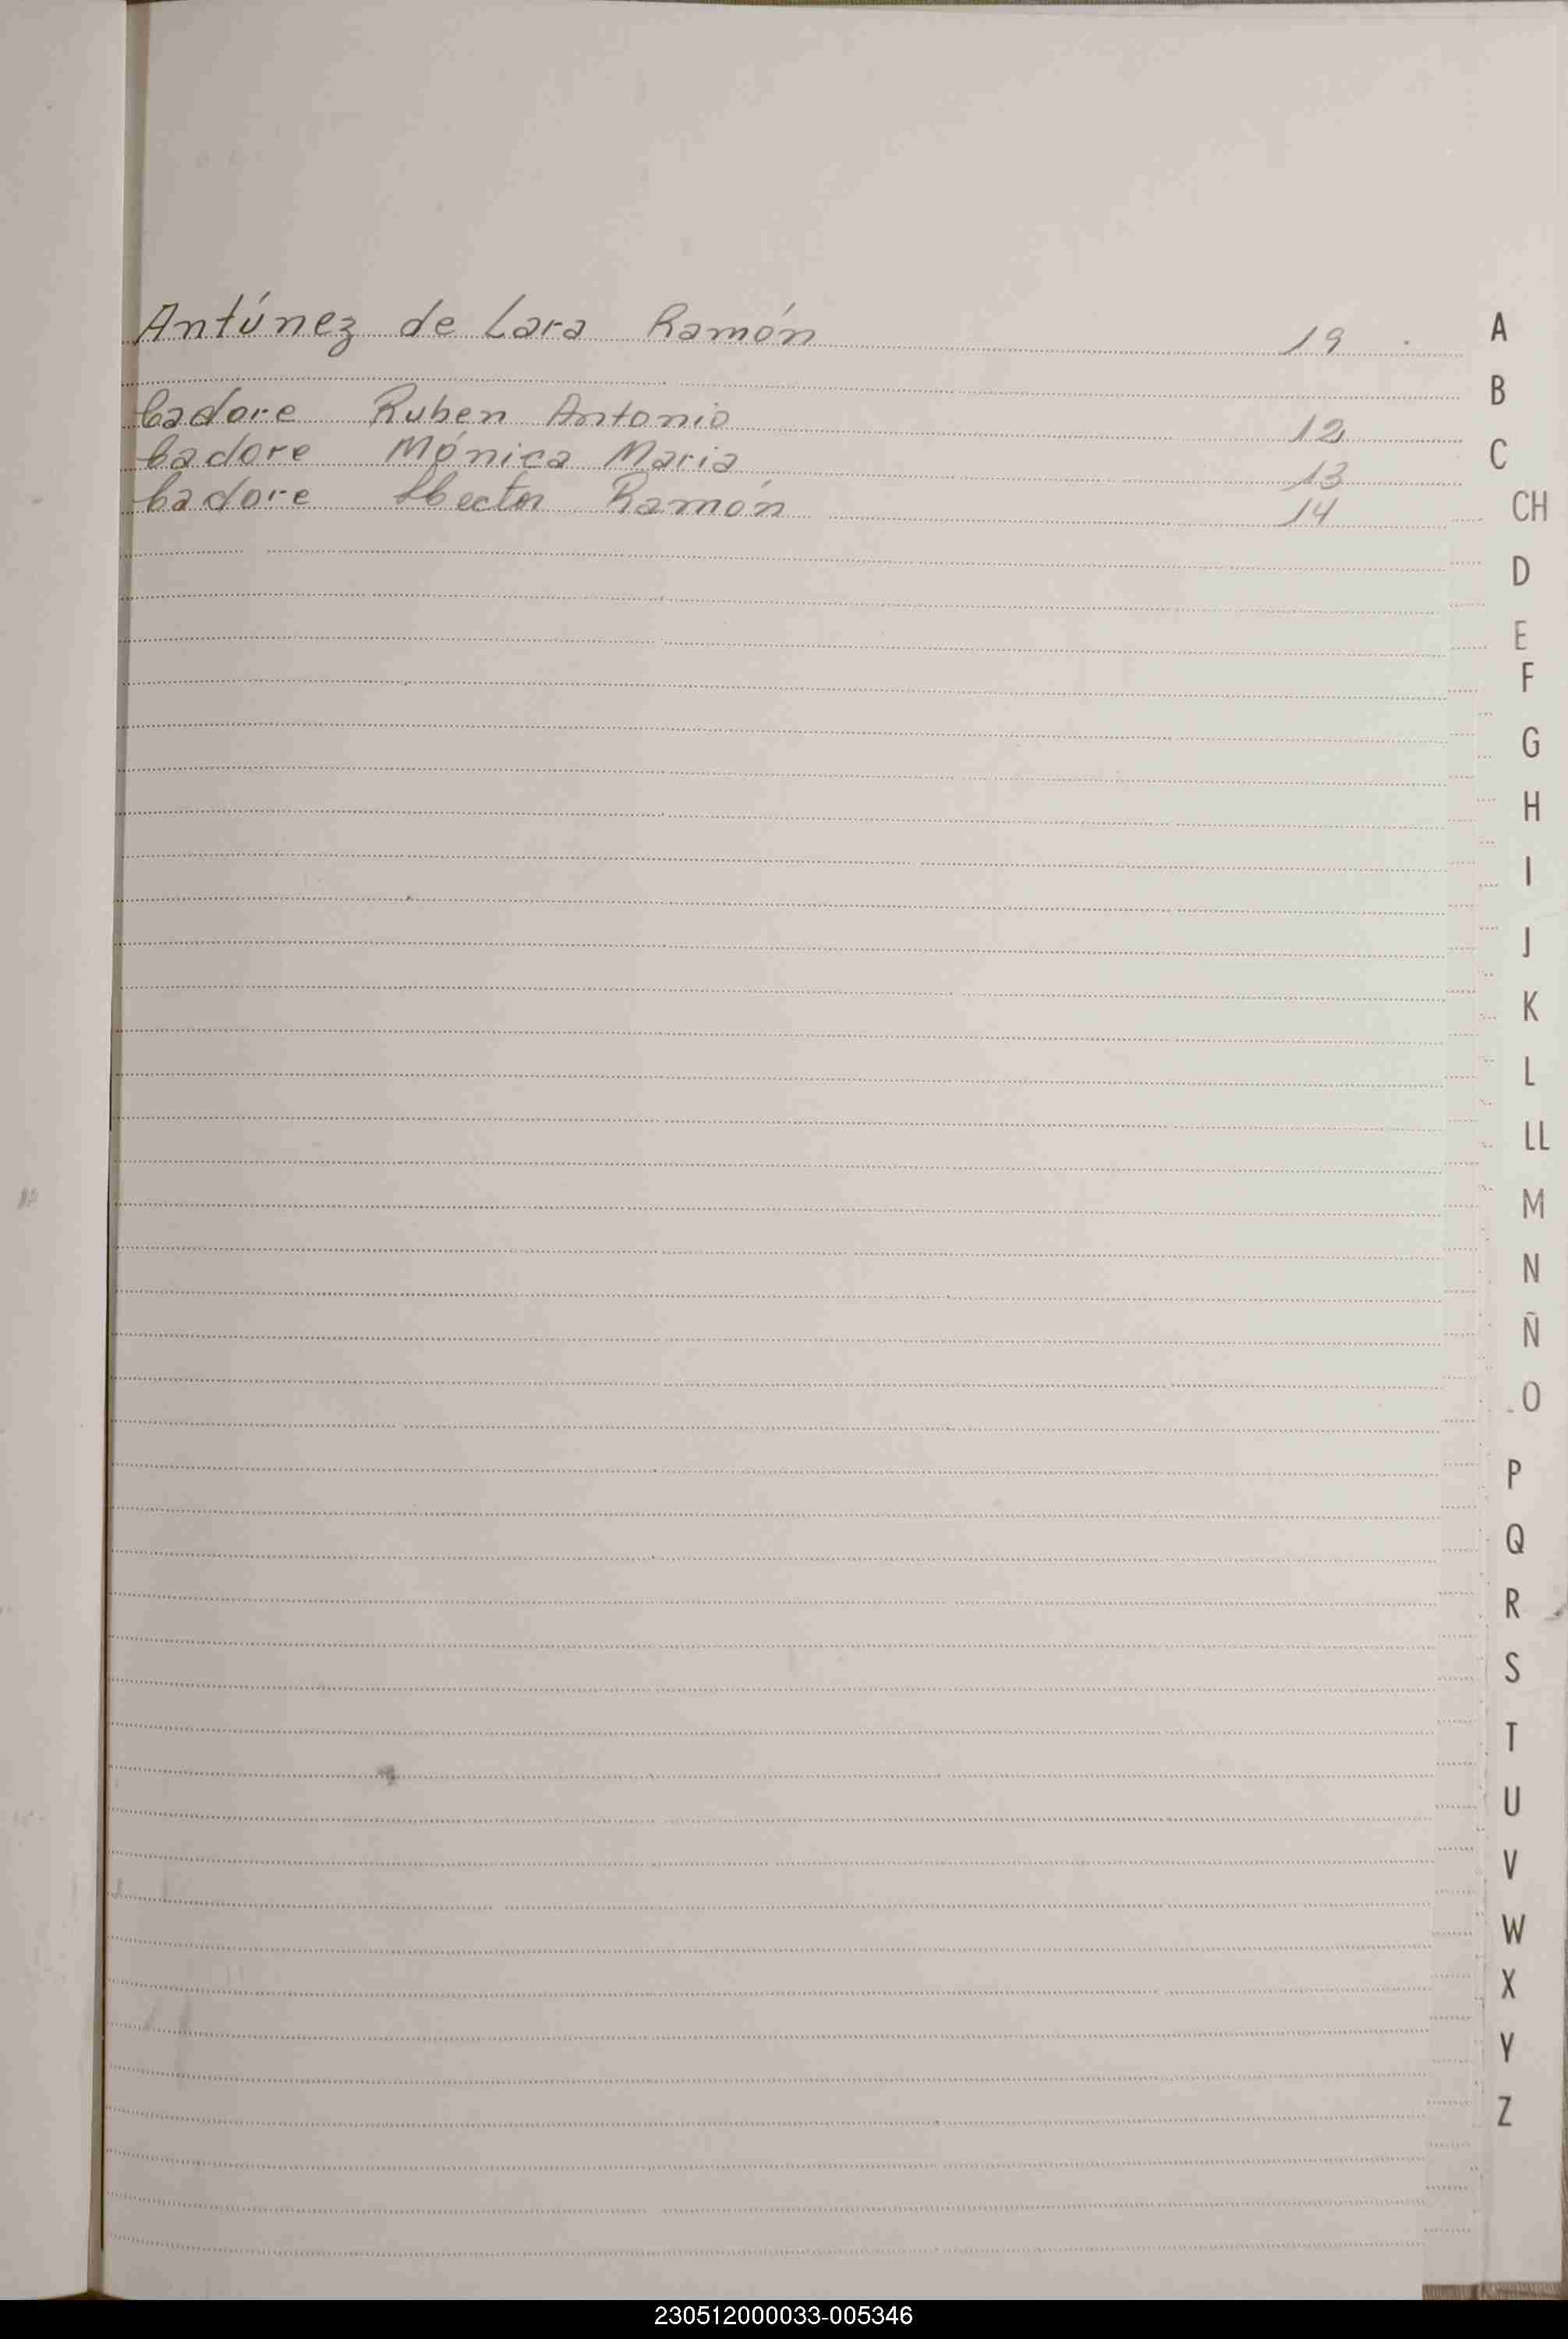 Antúnez de Lara Ramón 19 A
B
Cadore Ruben Antonio 12
Cadore Mónica Maria 13 C
Cadore Hector Ramón 14 CH
D
E
F
G
H
I
J
K
L
LL
M
N
Ñ
O
P
Q
R
S
T
U
V
W
X
Y
Z
230512000033-005346